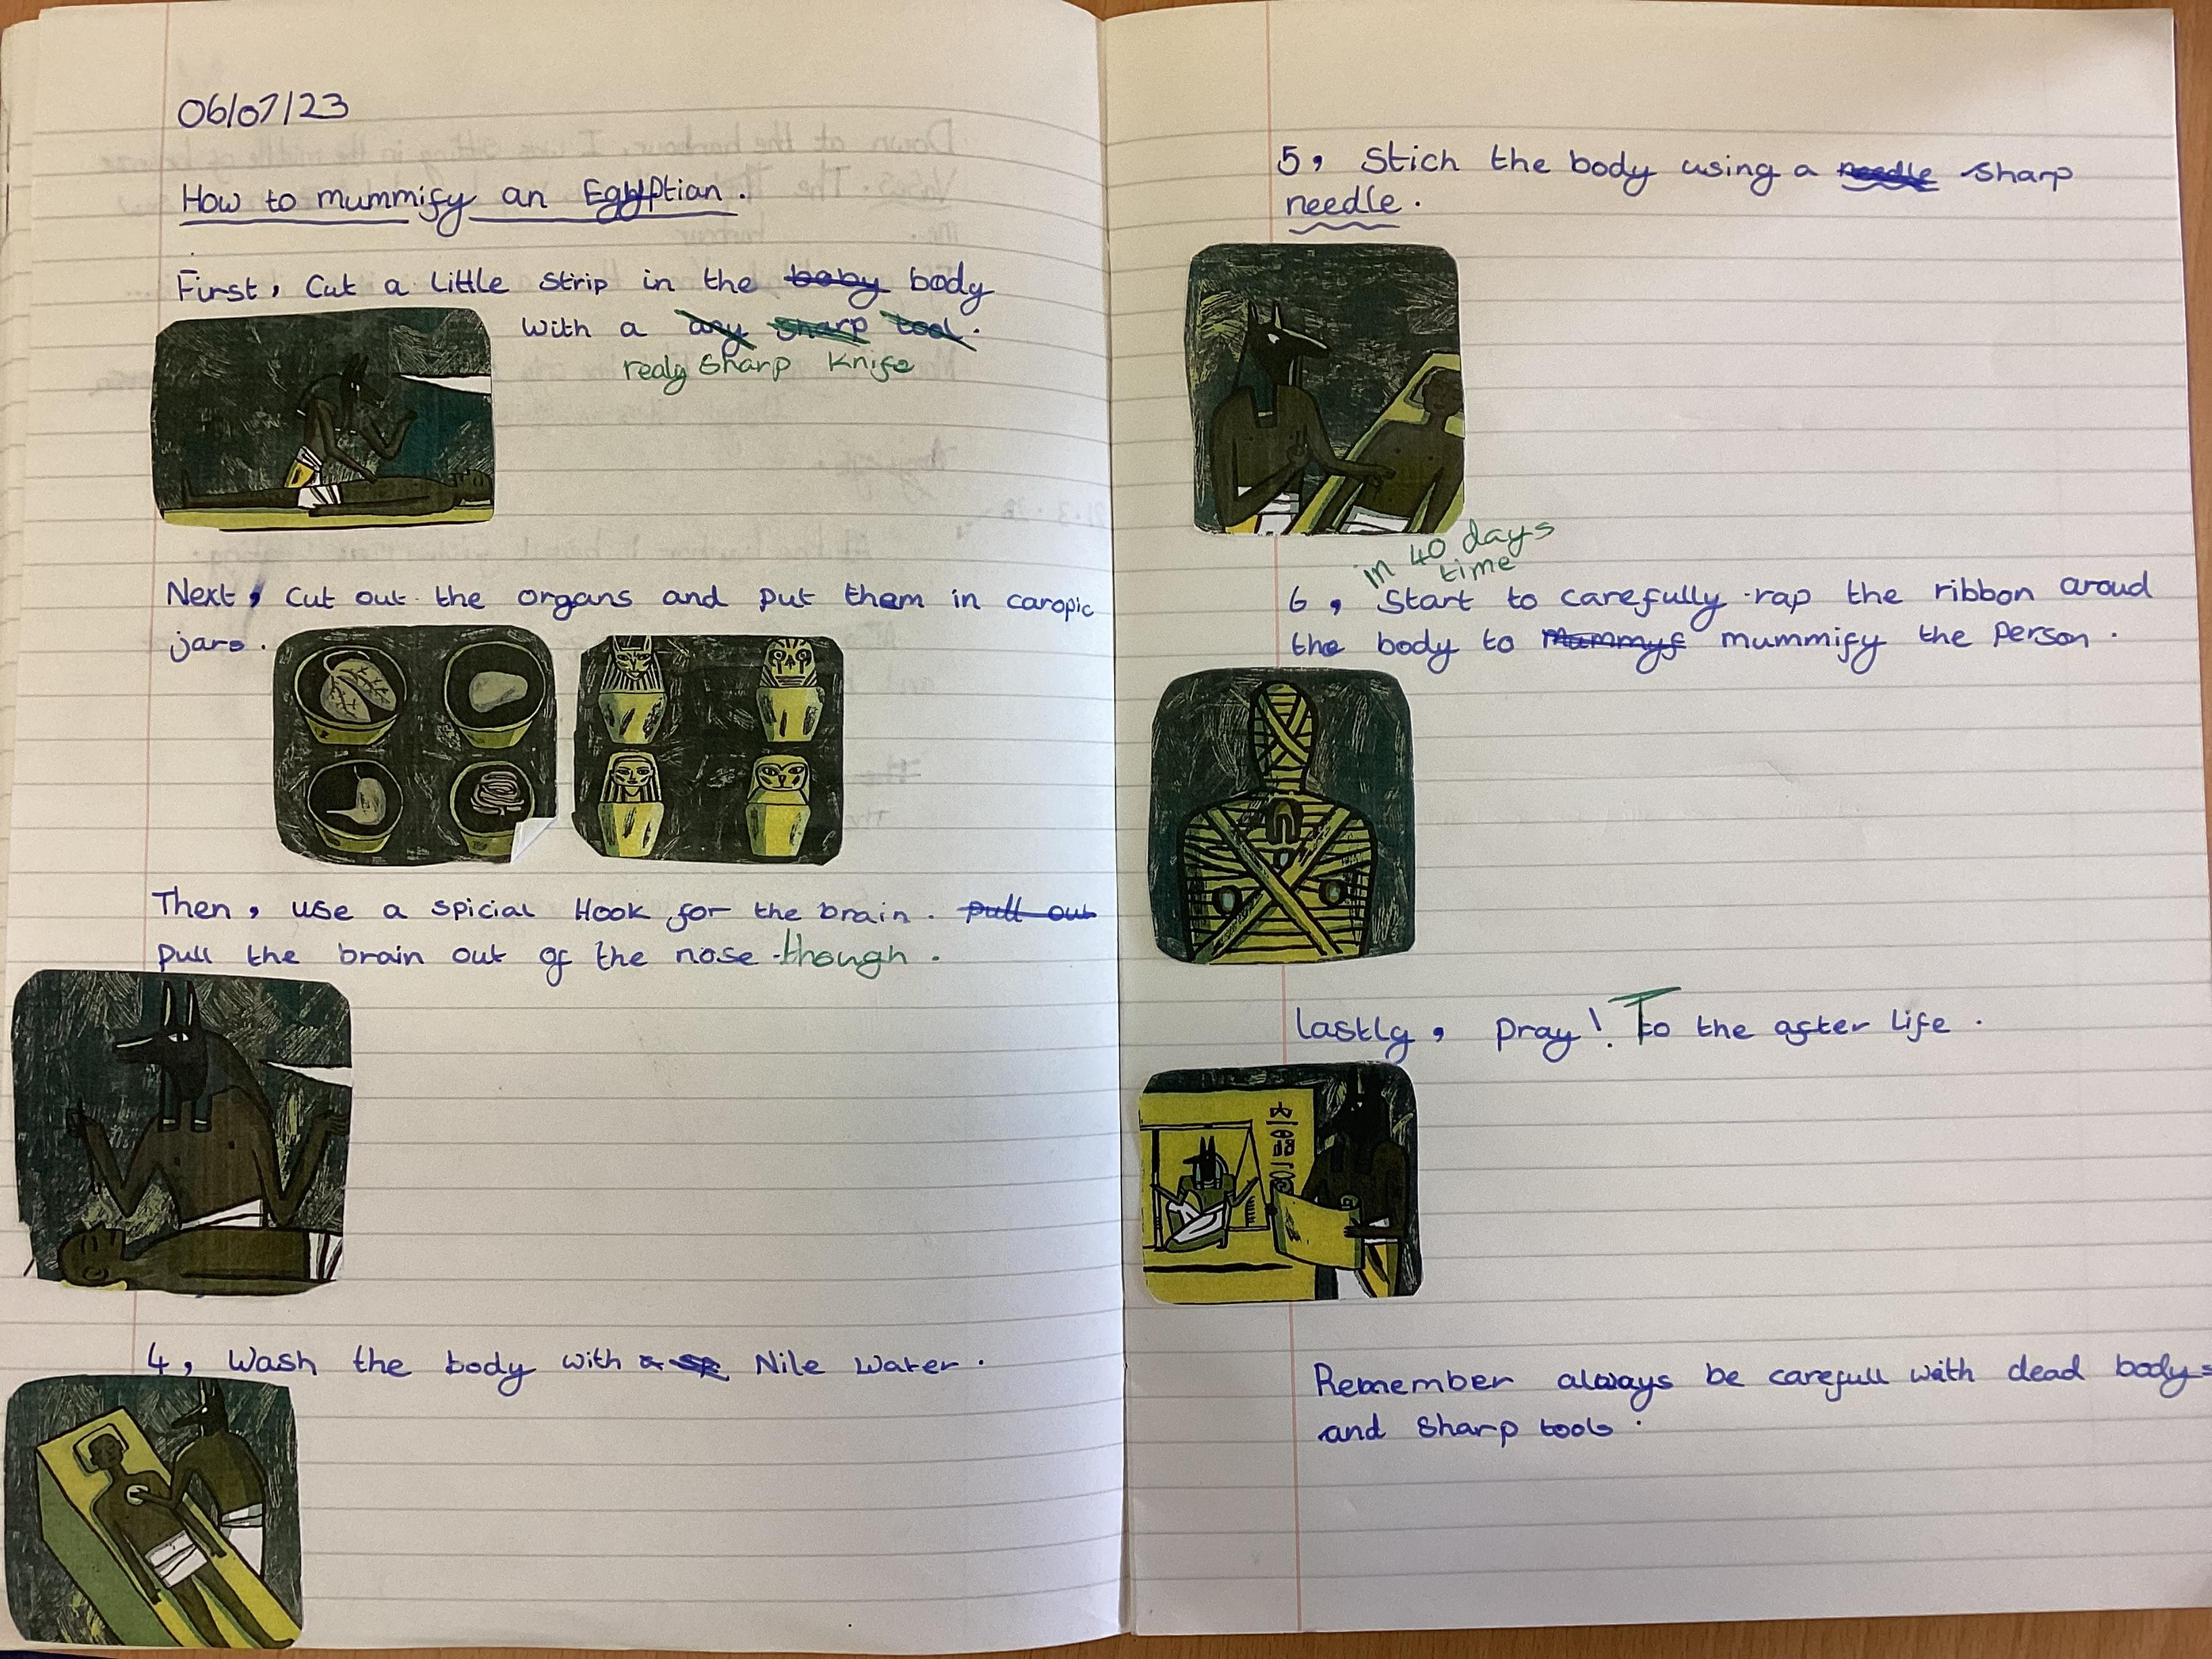 06/07/23
How to mummify an Egyptian.
First, Cut a little strip in the baby body
with a any sharp tool.
realy sharp knife
Next, cut out the organs and put them in caropic
jars.
Then, use a spicial Hook for the brain. pull out
pull the brain out of the nose though.
4, Wash the body with a sp Nile water.
5, Stich the body using a needle sharp
needle.
in 40 days
time
6, Start to carefully rap the ribbon aroud
the body to Mummyf mummify the person.
lastly, pray! To the after life.
Remember always be carefull with dead bodys
and sharp tools.